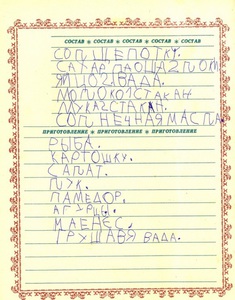 СОСТАВ ★ СОСТАВ ★ СОСТАВ ★ СОСТАВ ★ СОСТАВ
СОЛ ЩЕПОТКУ.
ЯЙЦО2 ВАДА.
МОЛОКО1СТАКАН
МУКА2СТАКАН.
СОЛНЕЧНАЯ МАСЛА
ПРИГОТОВЛЕНИЕ ★ ПРИГОТОВЛЕНИЕ ★ ПРИГОТОВЛЕНИЕ
РЫБА.
КАРТОШКУ.
САЛАТ.
ЛУК.
ПАМЕДОР.
АГУРЦ.
МАЕНЕС.
ГРУШАВЯ ВАДА.